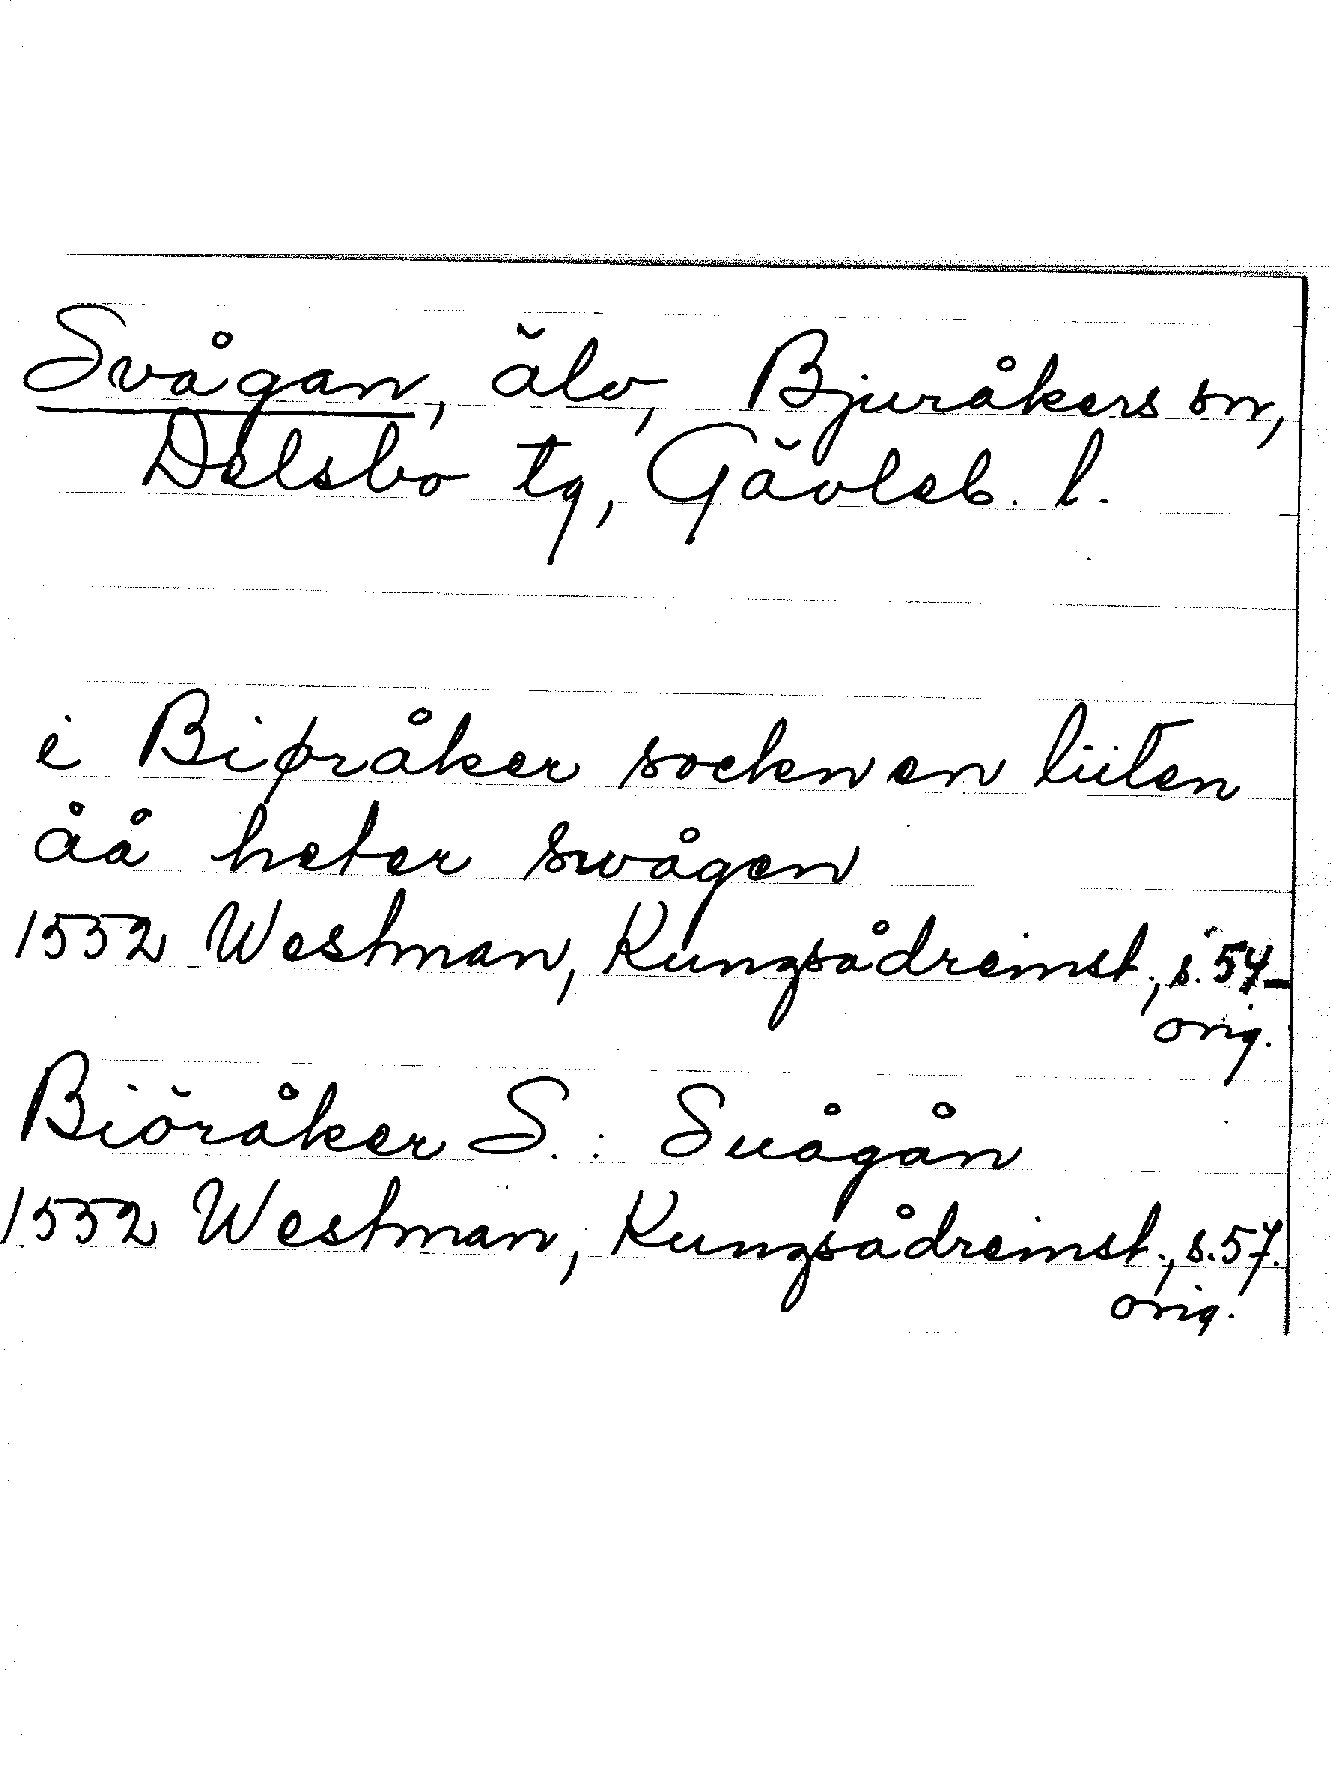 Svågan, älv, Bjuråkers sn,
Delsbo tg, Gävleb. l.
i Biøråker socken en liiten
åå heter swågen
1552 Westman, Kungsådreinst., s. 54
orig.
Biöråker S.: Suågån
1552 Westman, Kungsådreinst., s. 57.
orig.